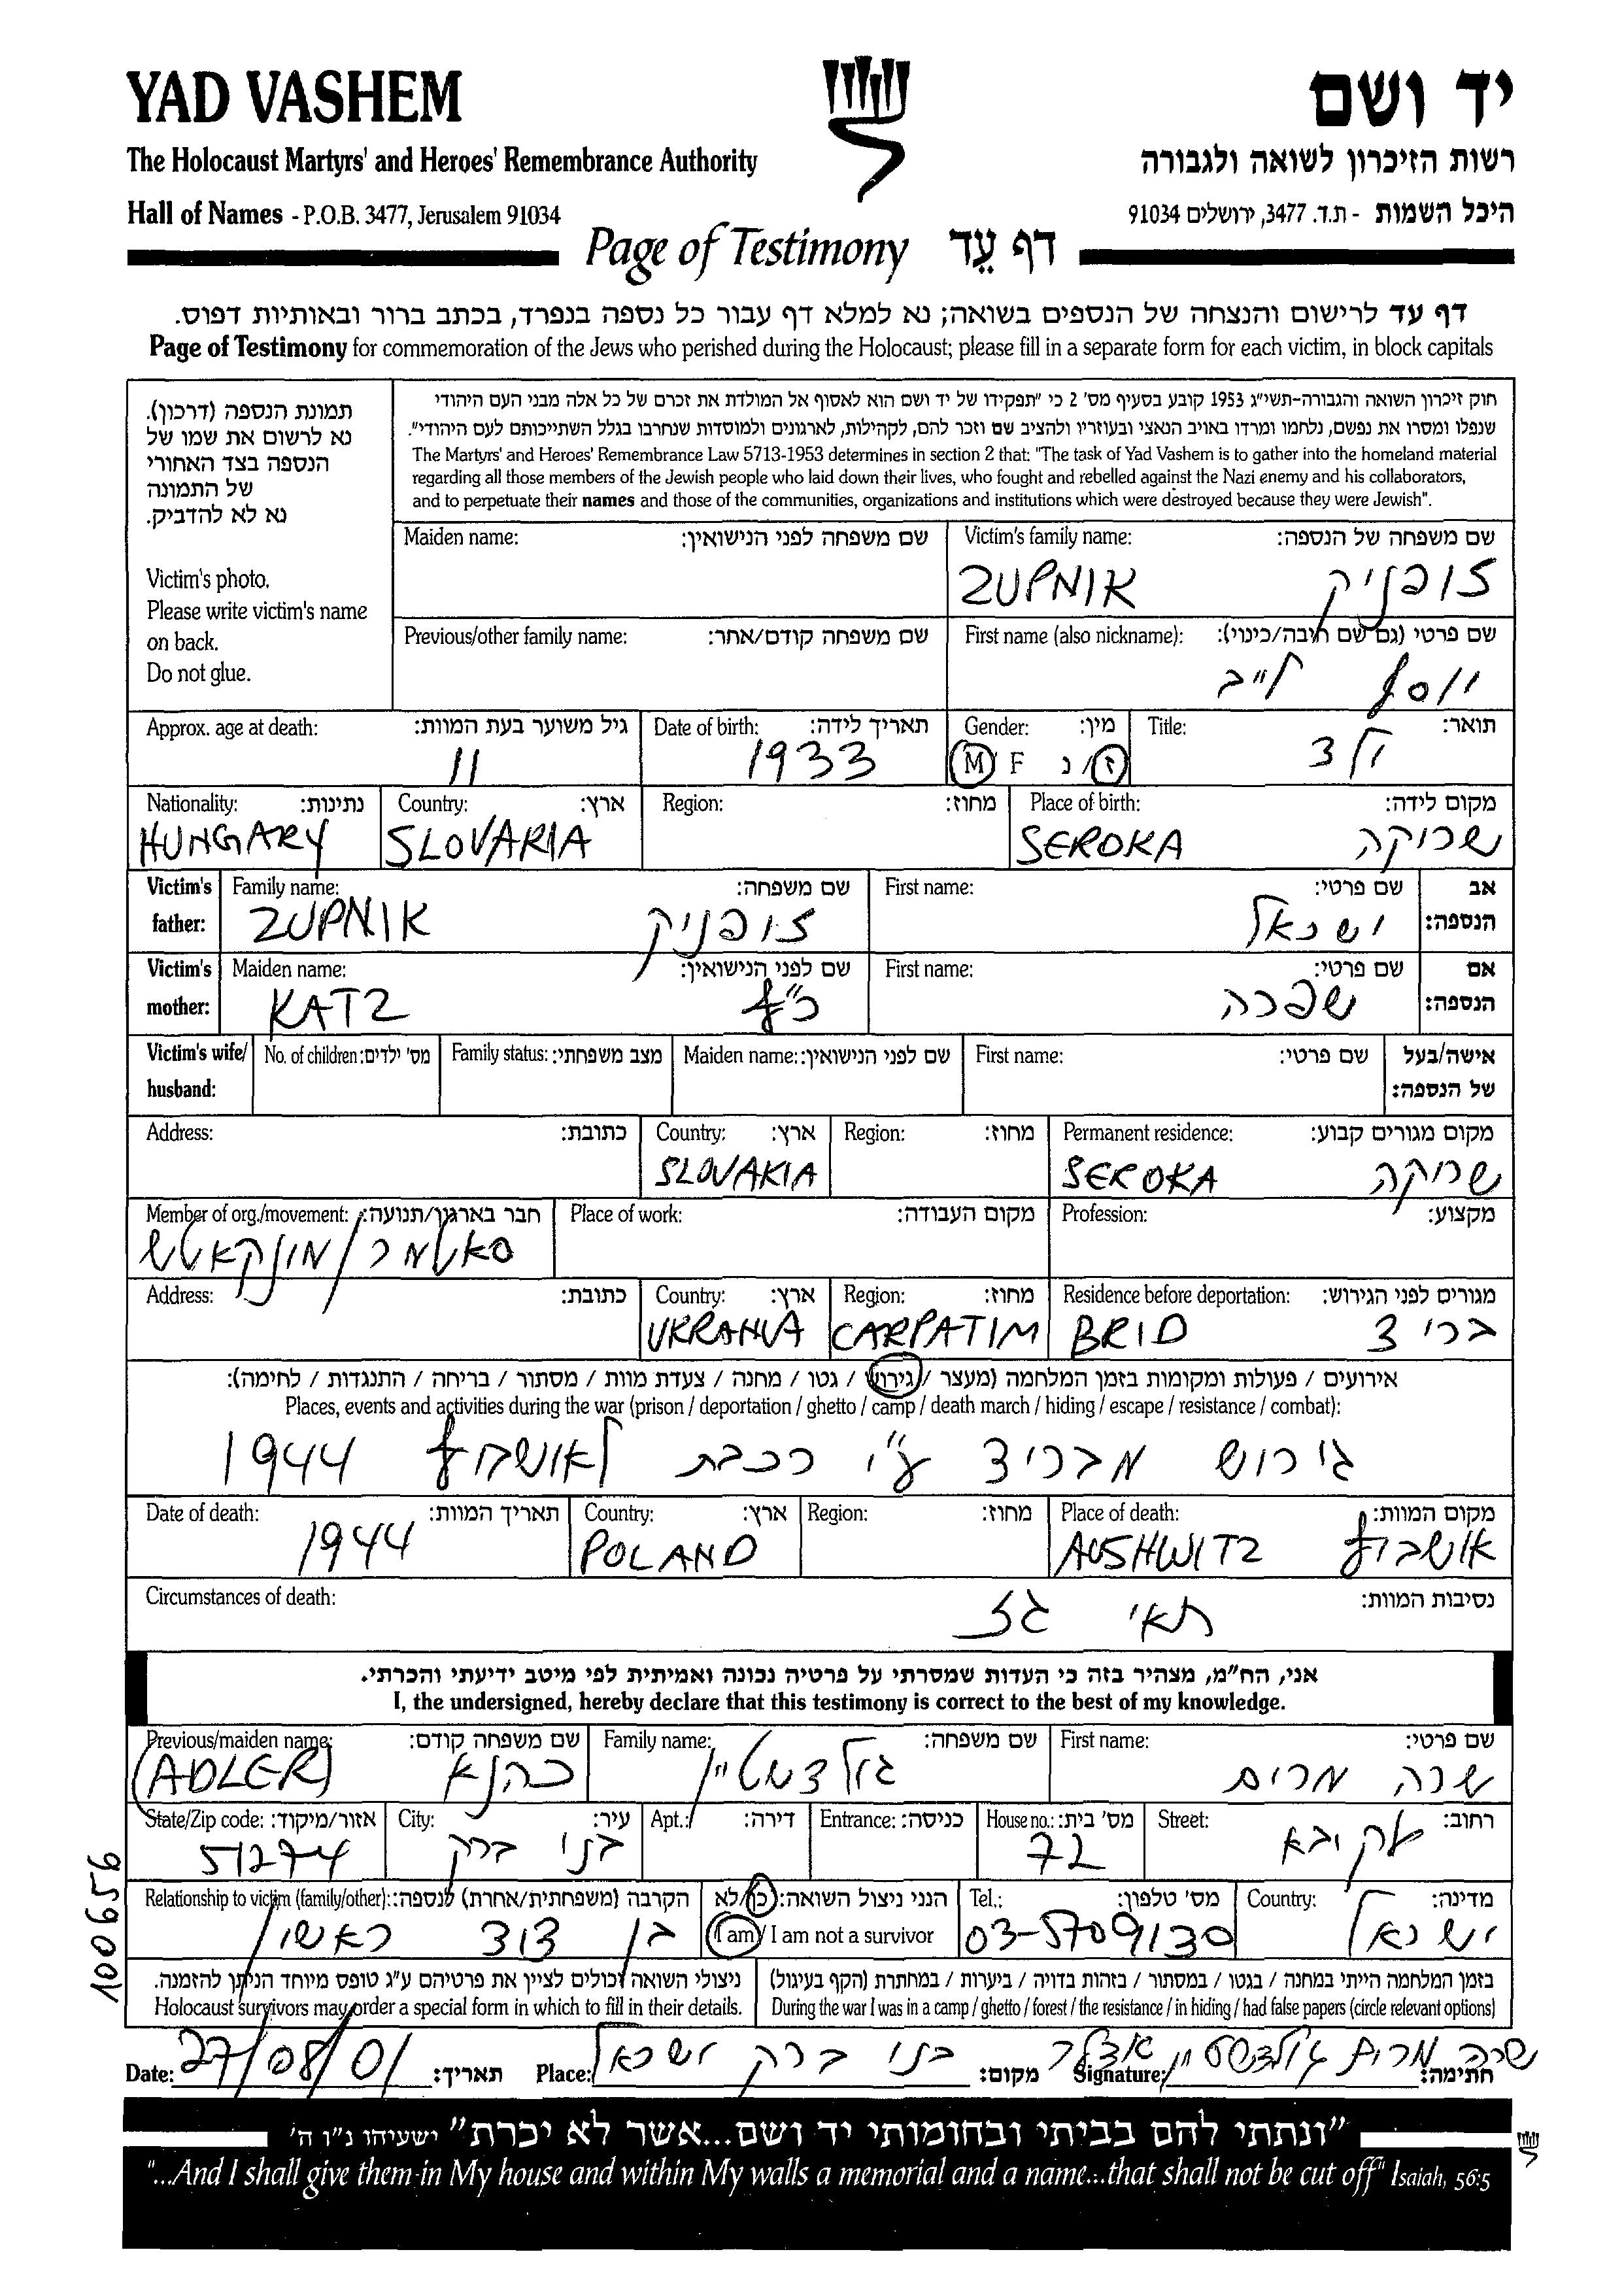 YAD VASHEM
יד ושם
The Holocaust Martyrs' and Heroes' Remembrance Authority
רשות הזיכרון לשואה ולגבורה
Hall of Names - P.O.B. 3477, Jerusalem 91034
היכל השמות - ת.ד. 3477, ירושלים 91034
Page of Testimony דף עֵד
דף עד לרישום והנצחה של הנספים בשואה; נא למלא דף עבור כל נספה בנפרד, בכתב ברור ובאותיות דפוס.
Page of Testimony for commemoration of the Jews who perished during the Holocaust; please fill in a separate form for each victim, in block capitals
תמונת הנספה (דרכון).
נא לרשום את שמו של
הנספה בצד האחורי
של התמונה
נא לא להדביק.
Victim's photo.
Please write victim's name
on back.
Do not glue.
חוק זיכרון השואה והגבורה-תשי"ג 1953 קובע בסעיף מס' 2 כי "תפקידו של יד ושם הוא לאסוף אל המולדת את זכרם של כל אלה מבני העם היהודי
שנפלו ומסרו את נפשם, נלחמו ומרדו באויב הנאצי ובעוזריו ולהציב שם וזכר להם, לקהילות, לארגונים ולמוסדות שנחרבו בגלל השתייכותם לעם היהודי".
The Martyrs' and Heroes' Remembrance Law 5713-1953 determines in section 2 that: "The task of Yad Vashem is to gather into the homeland material
regarding all those members of the Jewish people who laid down their lives, who fought and rebelled against the Nazi enemy and his collaborators,
and to perpetuate their names and those of the communities, organizations and institutions which were destroyed because they were Jewish".
Maiden name: שם משפחה לפני הנישואין:
Victim's family name: שם משפחה של הנספה:
ZUPNIK זופניק
Previous/other family name: שם משפחה קודם/אחר:
First name (also nickname): שם פרטי (גם שם חיבה/כינוי):
יוסף לייב
Approx. age at death: גיל משוער בעת המוות:
11
Date of birth: תאריך לידה:
1933
Gender: מין:
M / F ז/נ
Title: תואר:
ילד
Nationality: נתינות:
HUNGARY
Country: ארץ:
SLOVAKIA
Region: מחוז:
Place of birth: מקום לידה:
SEROKA שרוקה
Victim's father: אב הנספה:
Family name: שם משפחה:
ZUPNIK זופניק
First name: שם פרטי:
ישראל
Victim's mother: אם הנספה:
Maiden name: שם לפני הנישואין:
KATZ כ"ץ
First name: שם פרטי:
שפרה
Victim's wife/ husband: אישה/בעל של הנספה:
No. of children: מס' ילדים:
Family status: מצב משפחתי:
Maiden name: שם לפני הנישואין:
First name: שם פרטי:
Address: כתובת:
Country: ארץ:
SLOVAKIA
Region: מחוז:
Permanent residence: מקום מגורים קבוע:
SEROKA שרוקה
Member of org./movement: חבר בארגון/תנועה:
סאטמר/מונקאטש
Place of work: מקום העבודה:
Profession: מקצוע:
Address: כתובת:
Country: ארץ:
UKRANUA
Region: מחוז:
CARPATIM
Residence before deportation: מגורים לפני הגירוש:
BRID בריד
אירועים / פעולות ומקומות בזמן המלחמה (מעצר / גירוש / גטו / מחנה / צעדת מוות / מסתור / בריחה / התנגדות / לחימה):
Places, events and activities during the war (prison / deportation / ghetto / camp / death march / hiding / escape / resistance / combat):
גירוש מבריד ע"י רכבת לאושויץ 1944
Date of death: תאריך המוות:
1944
Country: ארץ:
POLAND
Region: מחוז:
Place of death: מקום המוות:
AUSHWITZ אושויץ
Circumstances of death: נסיבות המוות:
תאי גז
אני, הח"מ, מצהיר בזה כי העדות שמסרתי על פרטיה נכונה ואמיתית לפי מיטב ידיעתי והכרתי.
I, the undersigned, hereby declare that this testimony is correct to the best of my knowledge.
Previous/maiden name: שם משפחה קודם:
(ADLER) כהנא
Family name: שם משפחה:
גולדשטיין
First name: שם פרטי:
שרה מרים
State/Zip code: אזור/מיקוד:
51274
City: עיר:
בני ברק
Apt.: דירה:
Entrance: כניסה:
House no.: מס' בית:
72
Street: רחוב:
עקיבא
Relationship to victim (family/other): הקרבה (משפחתית/אחרת) לנספה:
בן דוד ראשון
הנני ניצול השואה: כן/לא
I am / I am not a survivor
Tel.: מס' טלפון:
03-5709130
Country: מדינה:
ישראל
ניצולי השואה יכולים לציין את פרטיהם ע"ג טופס מיוחד הניתן להזמנה.
Holocaust survivors may order a special form in which to fill in their details.
בזמן המלחמה הייתי במחנה / בגטו / במסתור / בזהות בדויה / ביערות / במחתרת (הקף בעיגול)
During the war I was in a camp / ghetto / forest / the resistance / in hiding / had false papers (circle relevant options)
Date: 27/08/01 תאריך:
Place: בני ברק ישראל מקום:
Signature: שרה מרים גולדשטיין אדלר חתימה:
100656
"ונתתי להם בביתי ובחומותי יד ושם...אשר לא יכרת" ישעיהו נ"ו ה'
"...And I shall give them in My house and within My walls a memorial and a name...that shall not be cut off" Isaiah, 56:5